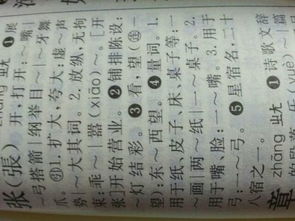 张(張) zhāng ㄓㄤ ❶展
开,打开:~嘴|~
弓搭箭|纲举目~|~牙舞
爪。1.扩大,夸大:虚~声
势|~大其词。2.放纵,无拘
束:乖~|嚣(xiāo)~。[开
张]开始营业。❷铺排陈设:
~灯结彩。❸看,望:
东~西望。❹量词。1.
用于纸、皮子、床、桌子等:
一~画|两~纸|一~桌子。2.
用于嘴、脸:一~嘴。3.用于
弓:一~弓。❺星宿名,二十
八宿之一。
章 zhāng ㄓㄤ ❶诗歌文辞
的段落